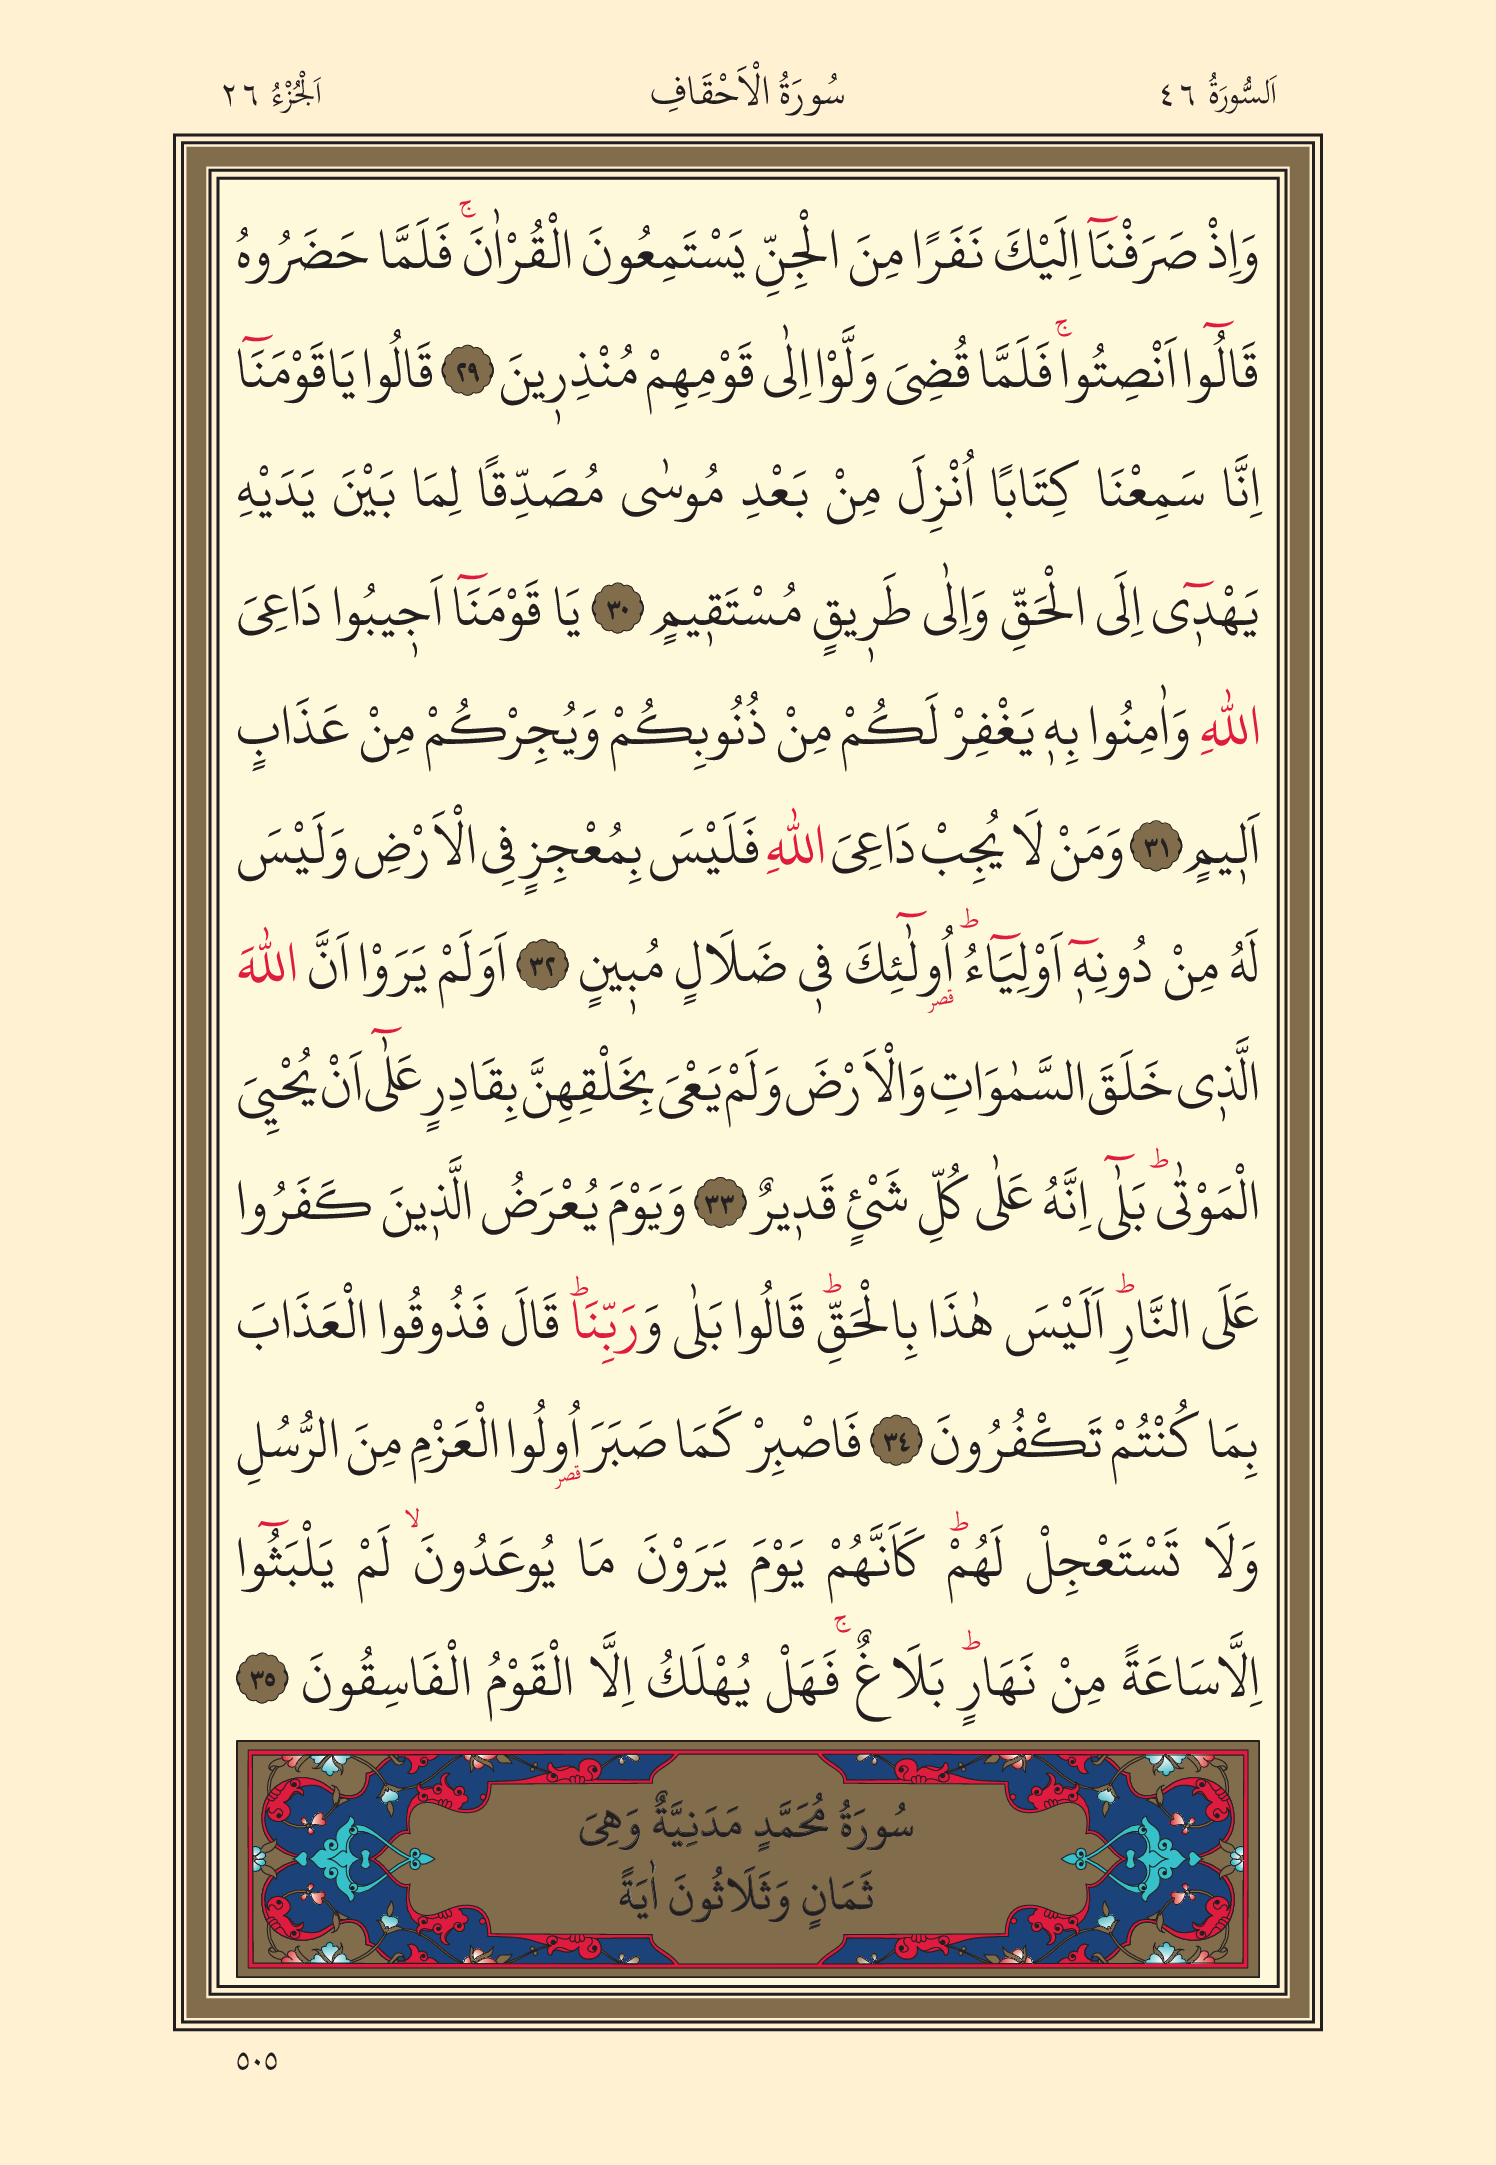 اَلسُّورَةُ ٤٦ سُورَةُ الْاَحْقَافِ اَلْجُزْءُ ٢٦
وَاِذْ صَرَفْنَٓا اِلَيْكَ نَفَرًا مِنَ الْجِنِّ يَسْتَمِعُونَ الْقُرْاٰنَۚ فَلَمَّا حَضَرُوهُ
قَالُٓوا اَنْصِتُواۚ فَلَمَّا قُضِىَ وَلَّوْا اِلٰى قَوْمِهِمْ مُنْذِر۪ينَ ﴿٢٩﴾ قَالُوا يَاقَوْمَنَٓا
اِنَّا سَمِعْنَا كِتَابًا اُنْزِلَ مِنْ بَعْدِ مُوسٰى مُصَدِّقًا لِمَا بَيْنَ يَدَيْهِ
يَهْد۪ٓى اِلَى الْحَقِّ وَاِلٰى طَر۪يقٍ مُسْتَق۪يمٍ ﴿٣٠﴾ يَا قَوْمَنَٓا اَج۪يبُوا دَاعِىَ
اللّٰهِ وَاٰمِنُوا بِه۪ يَغْفِرْ لَكُمْ مِنْ ذُنُوبِكُمْ وَيُجِرْكُمْ مِنْ عَذَابٍ
اَل۪يمٍ ﴿٣١﴾ وَمَنْ لَا يُجِبْ دَاعِىَ اللّٰهِ فَلَيْسَ بِمُعْجِزٍ فِى الْاَرْضِ وَلَيْسَ
لَهُ مِنْ دُونِه۪ٓ اَوْلِيَٓاءُۜ اُو۬لٰٓئِكَ ف۪ى ضَلَالٍ مُب۪ينٍ ﴿٣٢﴾ اَوَلَمْ يَرَوْا اَنَّ اللّٰهَ
الَّذ۪ى خَلَقَ السَّمٰوَاتِ وَالْاَرْضَ وَلَمْ يَعْىَ بِخَلْقِهِنَّ بِقَادِرٍ عَلٰٓى اَنْ يُحْيِىَ
الْمَوْتٰىۜ بَلٰٓى اِنَّهُ عَلٰى كُلِّ شَىْءٍ قَد۪يرٌ ﴿٣٣﴾ وَيَوْمَ يُعْرَضُ الَّذ۪ينَ كَفَرُوا
عَلَى النَّارِۜ اَلَيْسَ هٰذَا بِالْحَقِّۜ قَالُوا بَلٰى وَرَبِّنَاۜ قَالَ فَذُوقُوا الْعَذَابَ
بِمَا كُنْتُمْ تَكْفُرُونَ ﴿٣٤﴾ فَاصْبِرْ كَمَا صَبَرَ اُو۬لُوا الْعَزْمِ مِنَ الرُّسُلِ
وَلَا تَسْتَعْجِلْ لَهُمْۜ كَاَنَّهُمْ يَوْمَ يَرَوْنَ مَا يُوعَدُونَۙ لَمْ يَلْبَثُٓوا
اِلَّاسَاعَةً مِنْ نَهَارٍۜ بَلَاغٌۚ فَهَلْ يُهْلَكُ اِلَّا الْقَوْمُ الْفَاسِقُونَ ﴿٣٥﴾
سُورَةُ مُحَمَّدٍ مَدَنِيَّةٌ وَهِىَ
ثَمَانٍ وَثَلَاثُونَ اٰيَةً
٥٠٥